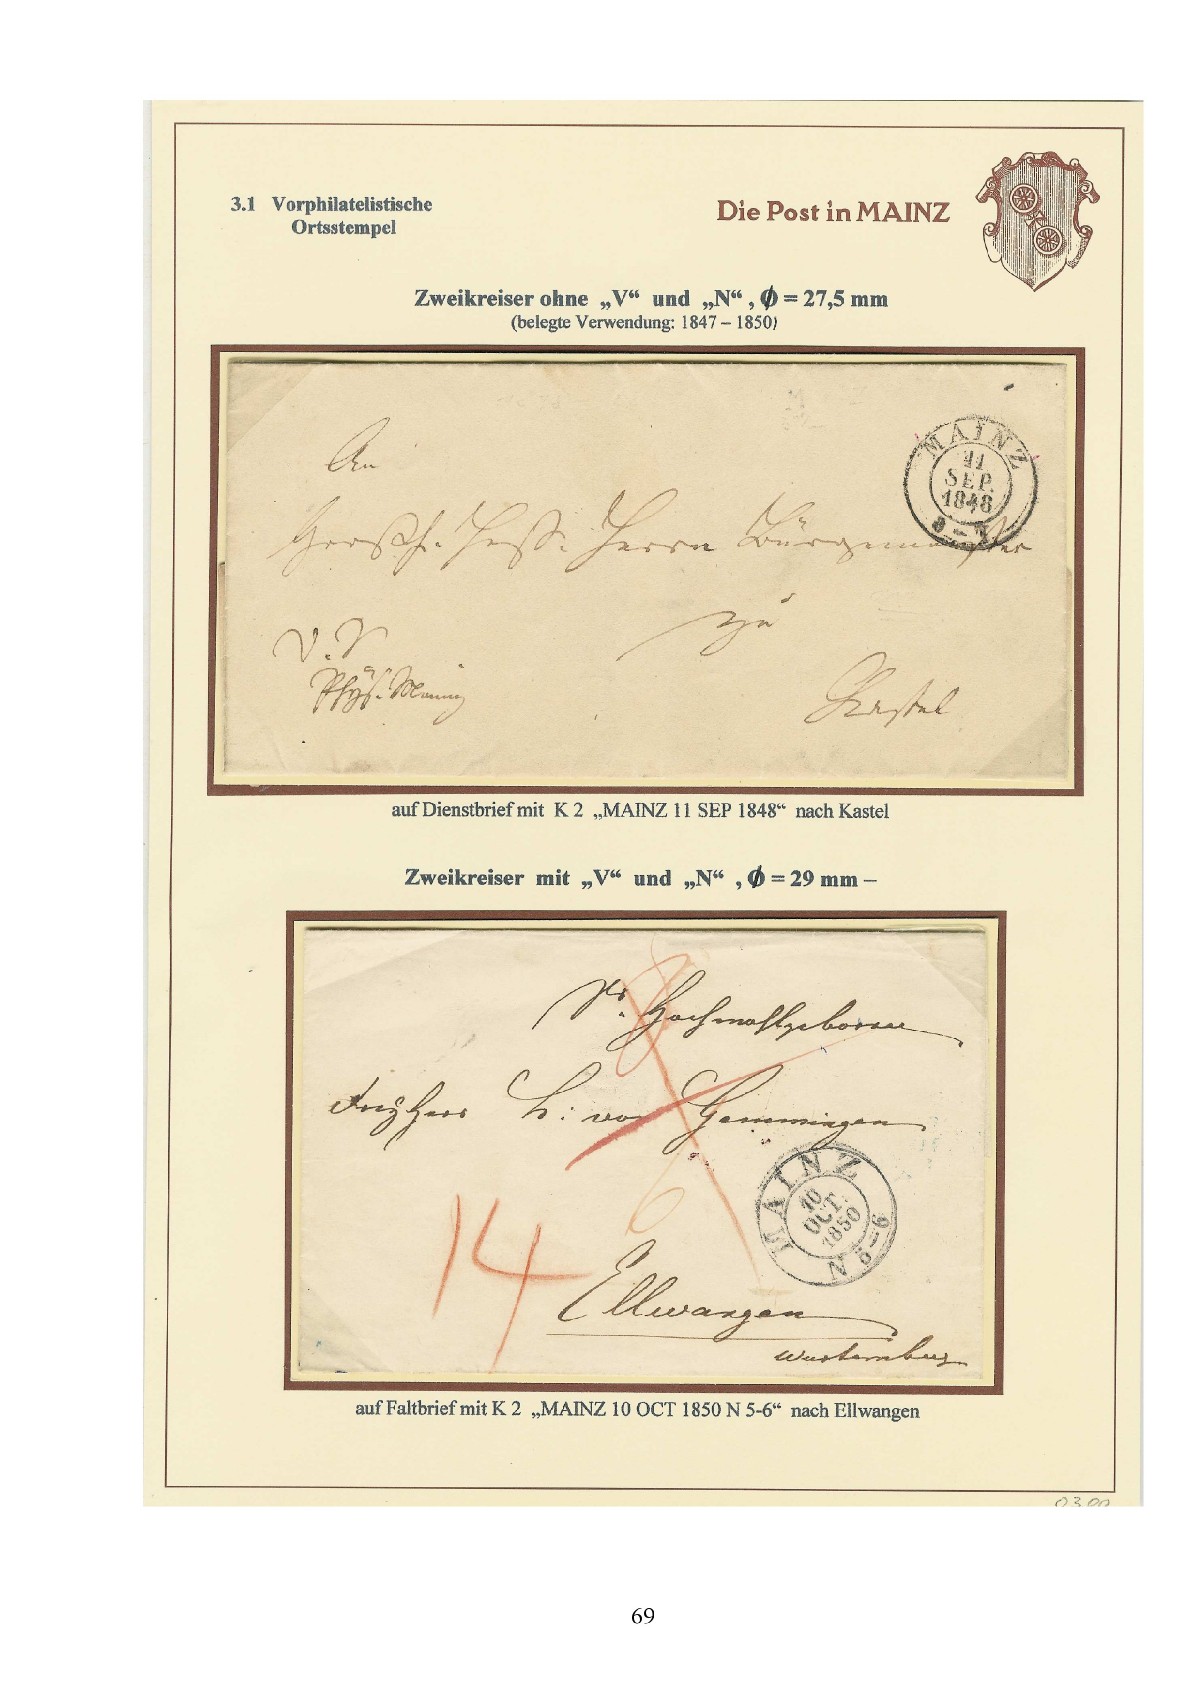 3.1 Vorphilatelistische
Ortsstempel
Die Post in MAINZ
Zweikreiser ohne „V“ und „N“ , Ø = 27,5 mm
(belegte Verwendung: 1847 – 1850)
MAINZ
11
SEP.
1848
An
Hess. Herrn Bürgermeister
zu
Kastel
auf Dienstbrief mit K 2 „MAINZ 11 SEP 1848“ nach Kastel
Zweikreiser mit „V“ und „N“ , Ø = 29 mm –
Sr. Hochwohlgeboren
Freyherr v: von Gemmingen
MAINZ
10
OCT.
1850
N 5-6
14
Ellwangen
Würtemberg
auf Faltbrief mit K 2 „MAINZ 10 OCT 1850 N 5-6“ nach Ellwangen
69